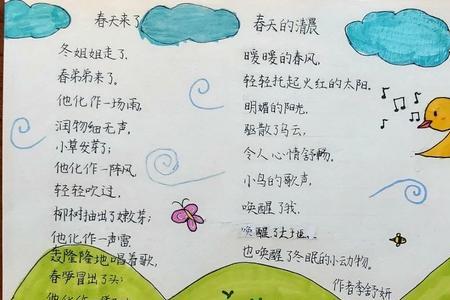 春天来了
冬姐姐走了，
春弟弟来了，
他化作一场雨，
润物细无声，
小草发芽了；
他化作一阵风，
轻轻吹过，
柳树抽出了嫩芽；
他化作一声雷
轰隆隆地唱着歌，
春笋冒出了头；
春天的清晨
暖暖的春风，
轻轻托起火红的太阳。
明媚的阳光，
驱散了乌云，
令人心情舒畅。
小鸟的歌声，
唤醒了我，
唤醒了大地，
也唤醒了冬眠的小动物。
作者李舒妍